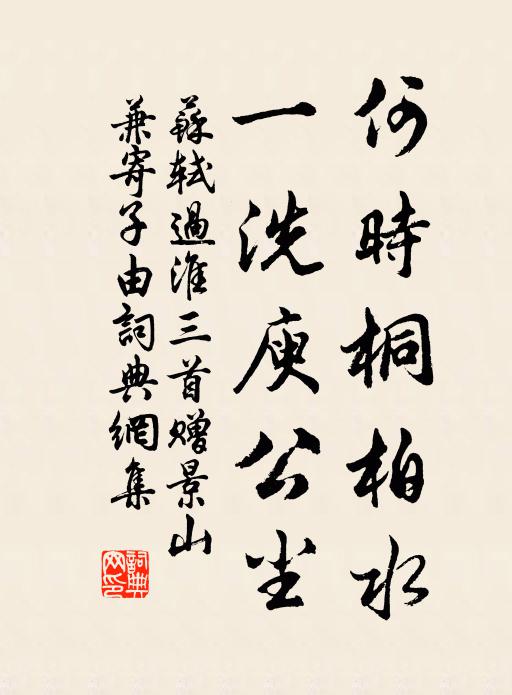 何時桐柏水
一洗庾公尘
蘇軾過淮三首赠景山
兼寄子由詞典網集
詞典网印